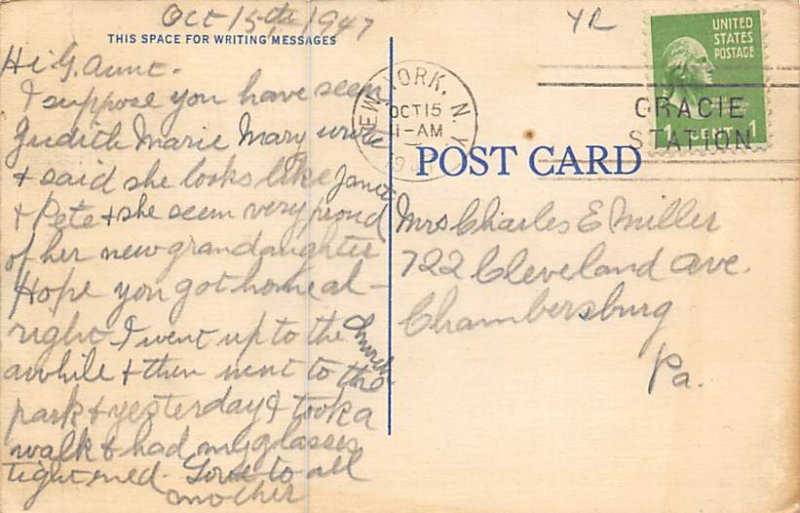 Oct 15th 1947
THIS SPACE FOR WRITING MESSAGES
Hi G. Aunt.
I suppose you have seen
Judith Marie Mary wrote
& said she looks like Janet
& Pete & she seem very proud
of her new grandaughter
Hope you got home al-
right I went up to the Church
awhile & then went to the
park & yesterday I took a
walk & had my glasses
tightened. Love to all
mother
NEW YORK, N.Y.
OCT 15
11-AM
GRACIE
STATION
UNITED
STATES
POSTAGE
1 CENT 1
POST CARD
Mrs Charles E Miller
722 Cleveland Ave.
Chambersburg
Pa.